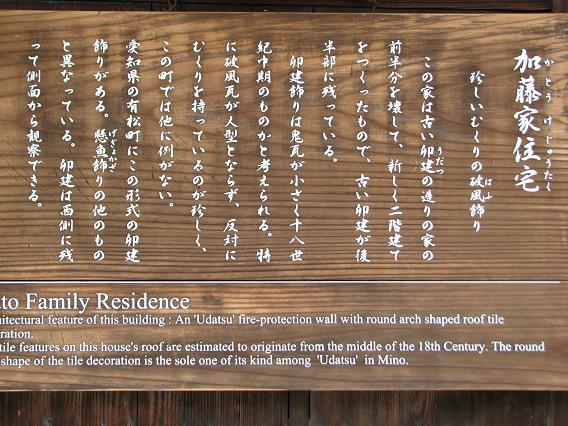 加藤家住宅
かとうけじゅうたく
珍しいむくりの破風飾り
はふ
この家は古い卯建の造りの家の
うだつ
前半分を壊して、新しく二階建て
をつくったもので、古い卯建が後
半部に残っている。
卯建飾りは鬼瓦が小さく十八世
紀中期のものかと考えられる。特
に破風瓦が人型とならず、反対に
むくりを持っているのが珍しく、
この町では他に例がない。
愛知県の有松町にこの形式の卯建
飾りがある。懸魚飾りの他のもの
げぎょかざ
と異なっている。卯建は西側に残
って側面から観察できる。
to Family Residence
itectural feature of this building : An 'Udatsu' fire-protection wall with round arch shaped roof tile
ration.
tile features on this house's roof are estimated to originate from the middle of the 18th Century. The round
shape of the tile decoration is the sole one of its kind among 'Udatsu' in Mino.